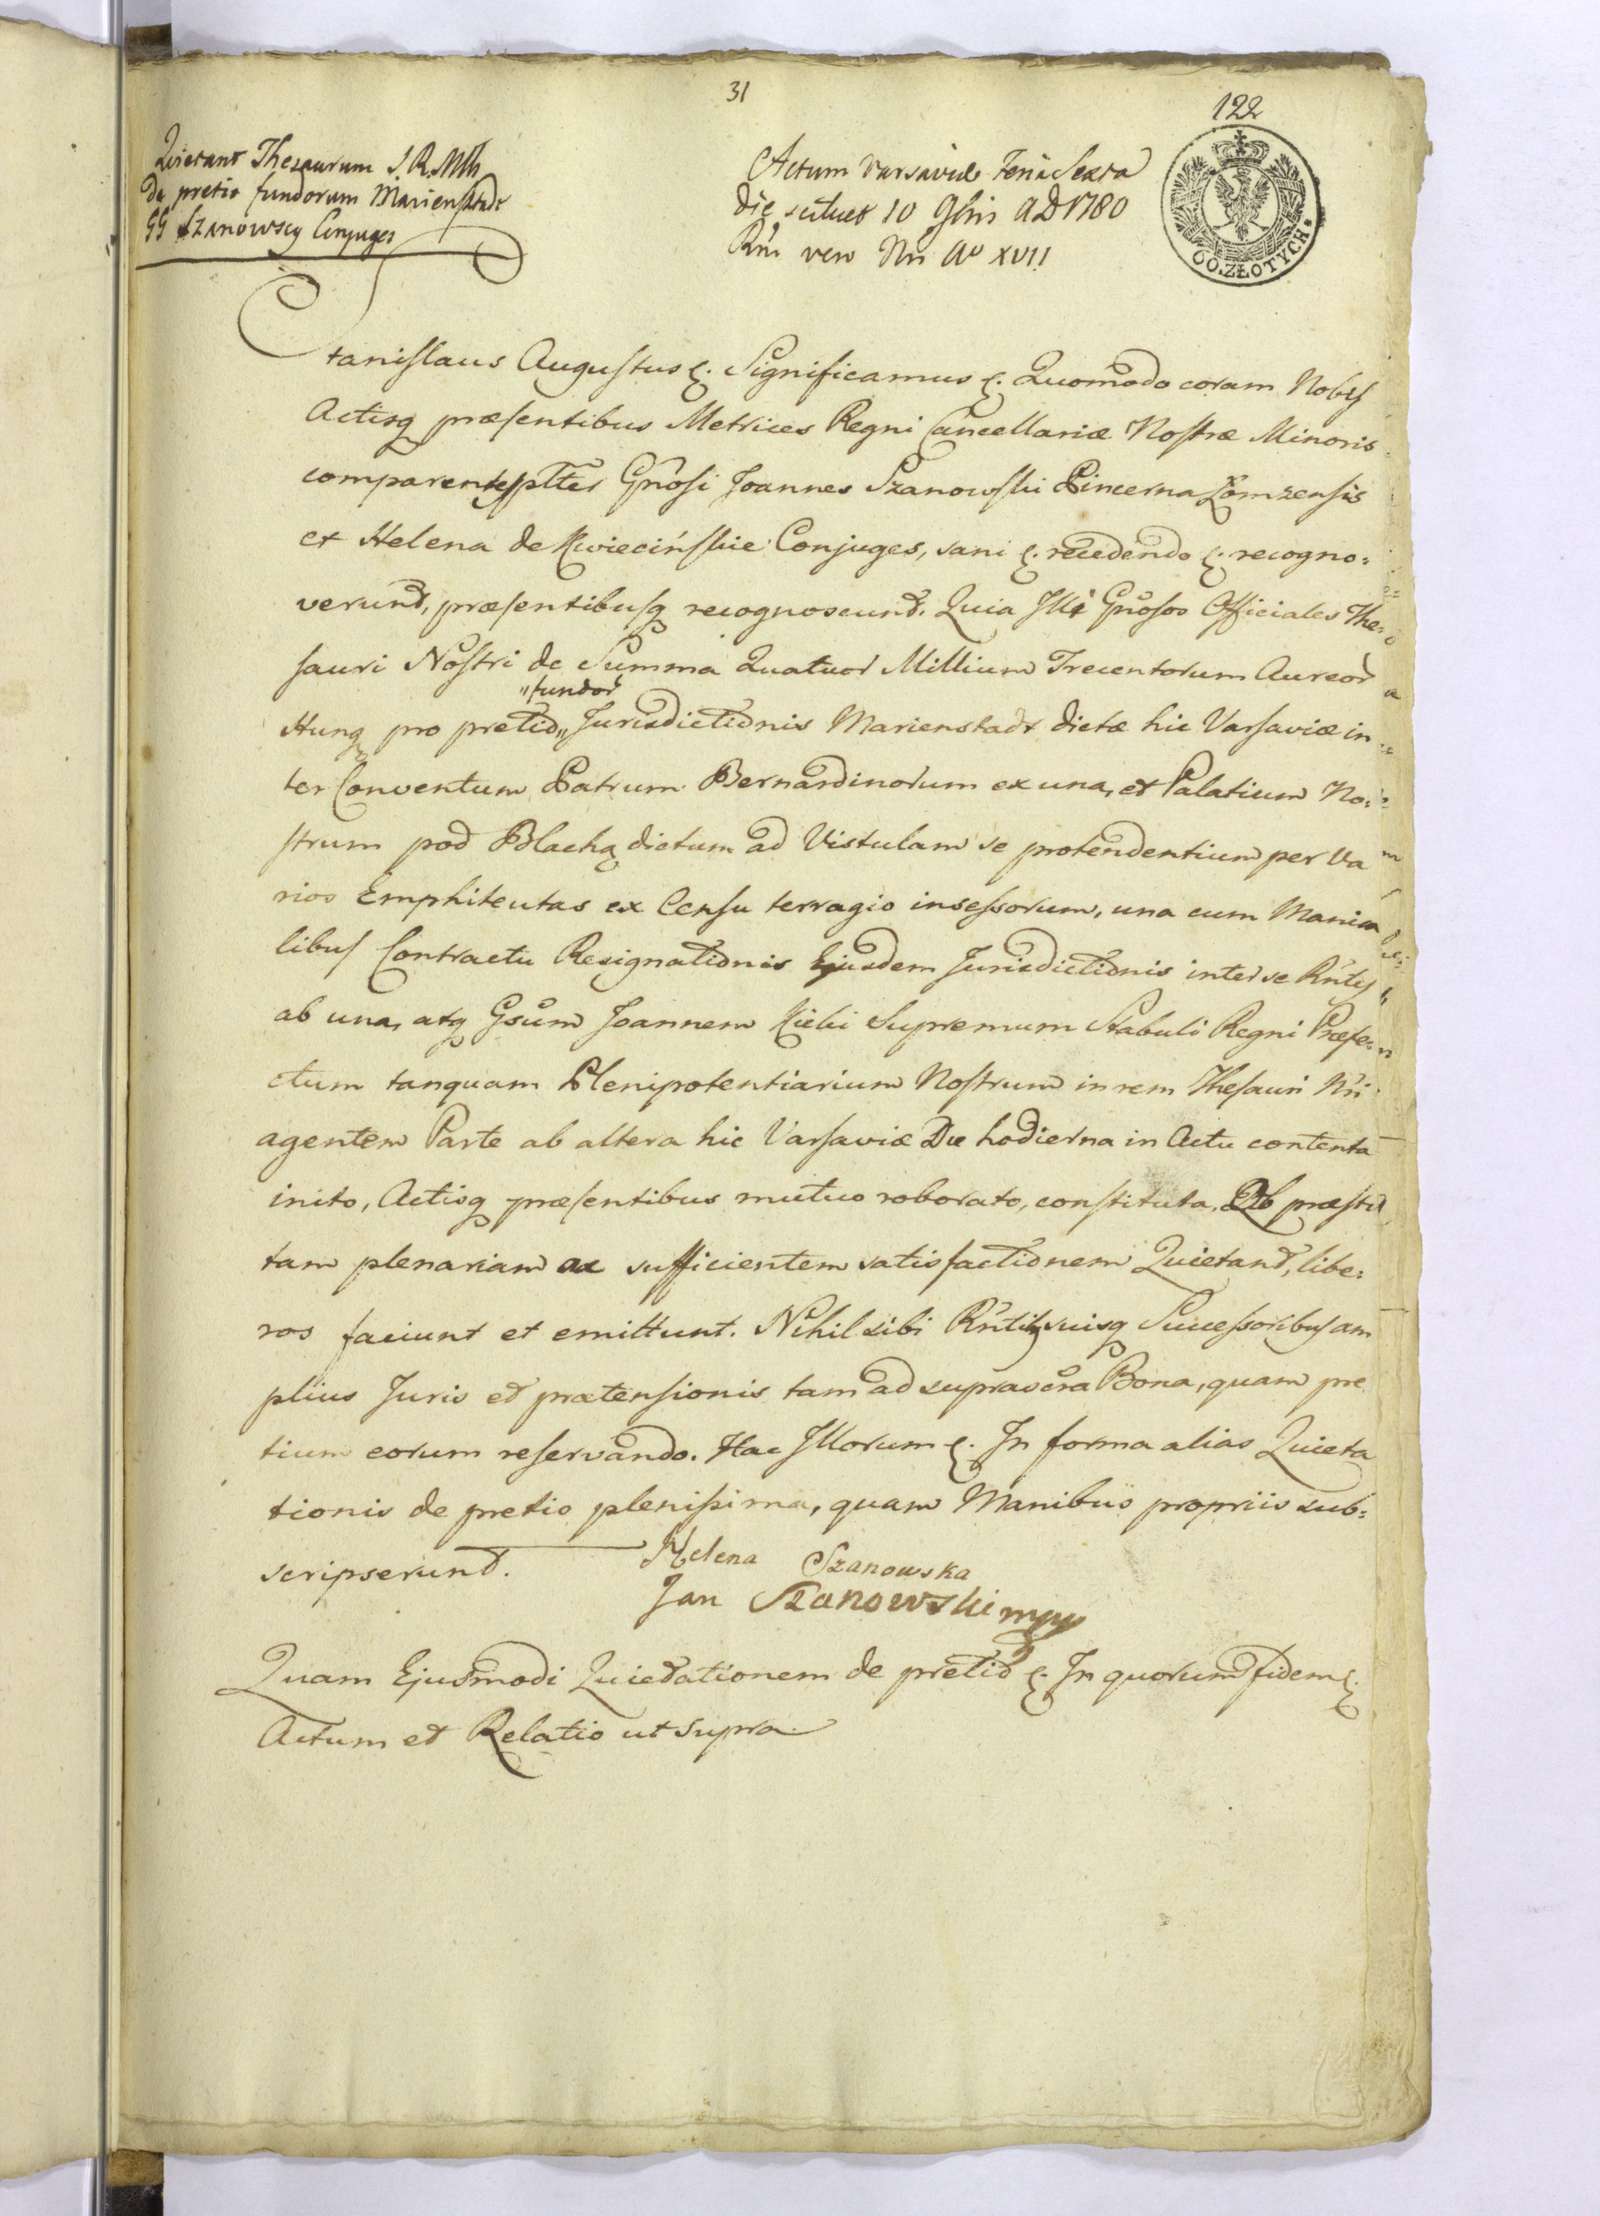 31
122
60. ZŁOTYCH.
Quietant Thesaurum S. R. Mtis
de pretio fundorum Marienstadt
GG Szanowscy Conjuges
Actum Varsaviæ Feria Sexta
die scilicet 10 9bris AD 1780
Rni vero Nri Ao XVII
Stanislaus Augustus &. Significamus &. Quomodo coram Nobis
Actisq præsentibus Metrices Regni Cancellariæ Nostræ Minoris
comparentes pltter Gnosi Joannes Szanowski Pincerna Łomzensis
et Helena de Kwiecińskie Conjuges, sani &. recedendo &. recogno=
verunt, præsentibusq recognoscunt. Quia Illi Gnosos Officiales The=
sauri Nostri de Summa Quatuor Millium Trecentorum Aureor
"fundor
Hung pro pretio,, Jurisdictionis Marienstadt dictæ hic Varsaviæ in
ter Conventum Patrum Bernardinorum ex una, et Palatium No=
strum pod Blachą dictum ad Vistulam se protendentium per Va
rios Emphiteutas ex Censu terragio insessorum, una cum Mania
libus Contractu Resignationis Ejusdem Jurisdictionis inter se Rntes
ab una, atq Gsum Joannem Kicki Supremum Stabuli Regni Præfe=
ctum tanquam Plenipotentiarium Nostrum in rem Thesauri Nri
agentem Parte ab altera hic Varsaviæ Die hodierna in Actu contenta
inito, Actisq præsentibus mutuo roborato, constituta, Ob præsti
tam plenariam ac sufficientem satisfactionem Quietant, libe=
ros faciunt et emittunt. Nihil sibi Rntibus suisq Successoribus am
plius Juris et prætensionis tam ad suprascra Bona, quam pre
tium eorum reservando. Hac Illorum &. In forma alias Quieta
tionis de pretio plenissima, quam Manibus propriis sub=
scripserunt.
Helena Szanowska
Jan Szanowski mpp
Quam Ejusmodi Quietationem de pretio &. In quorum fidem &.
Actum et Relatio ut supra